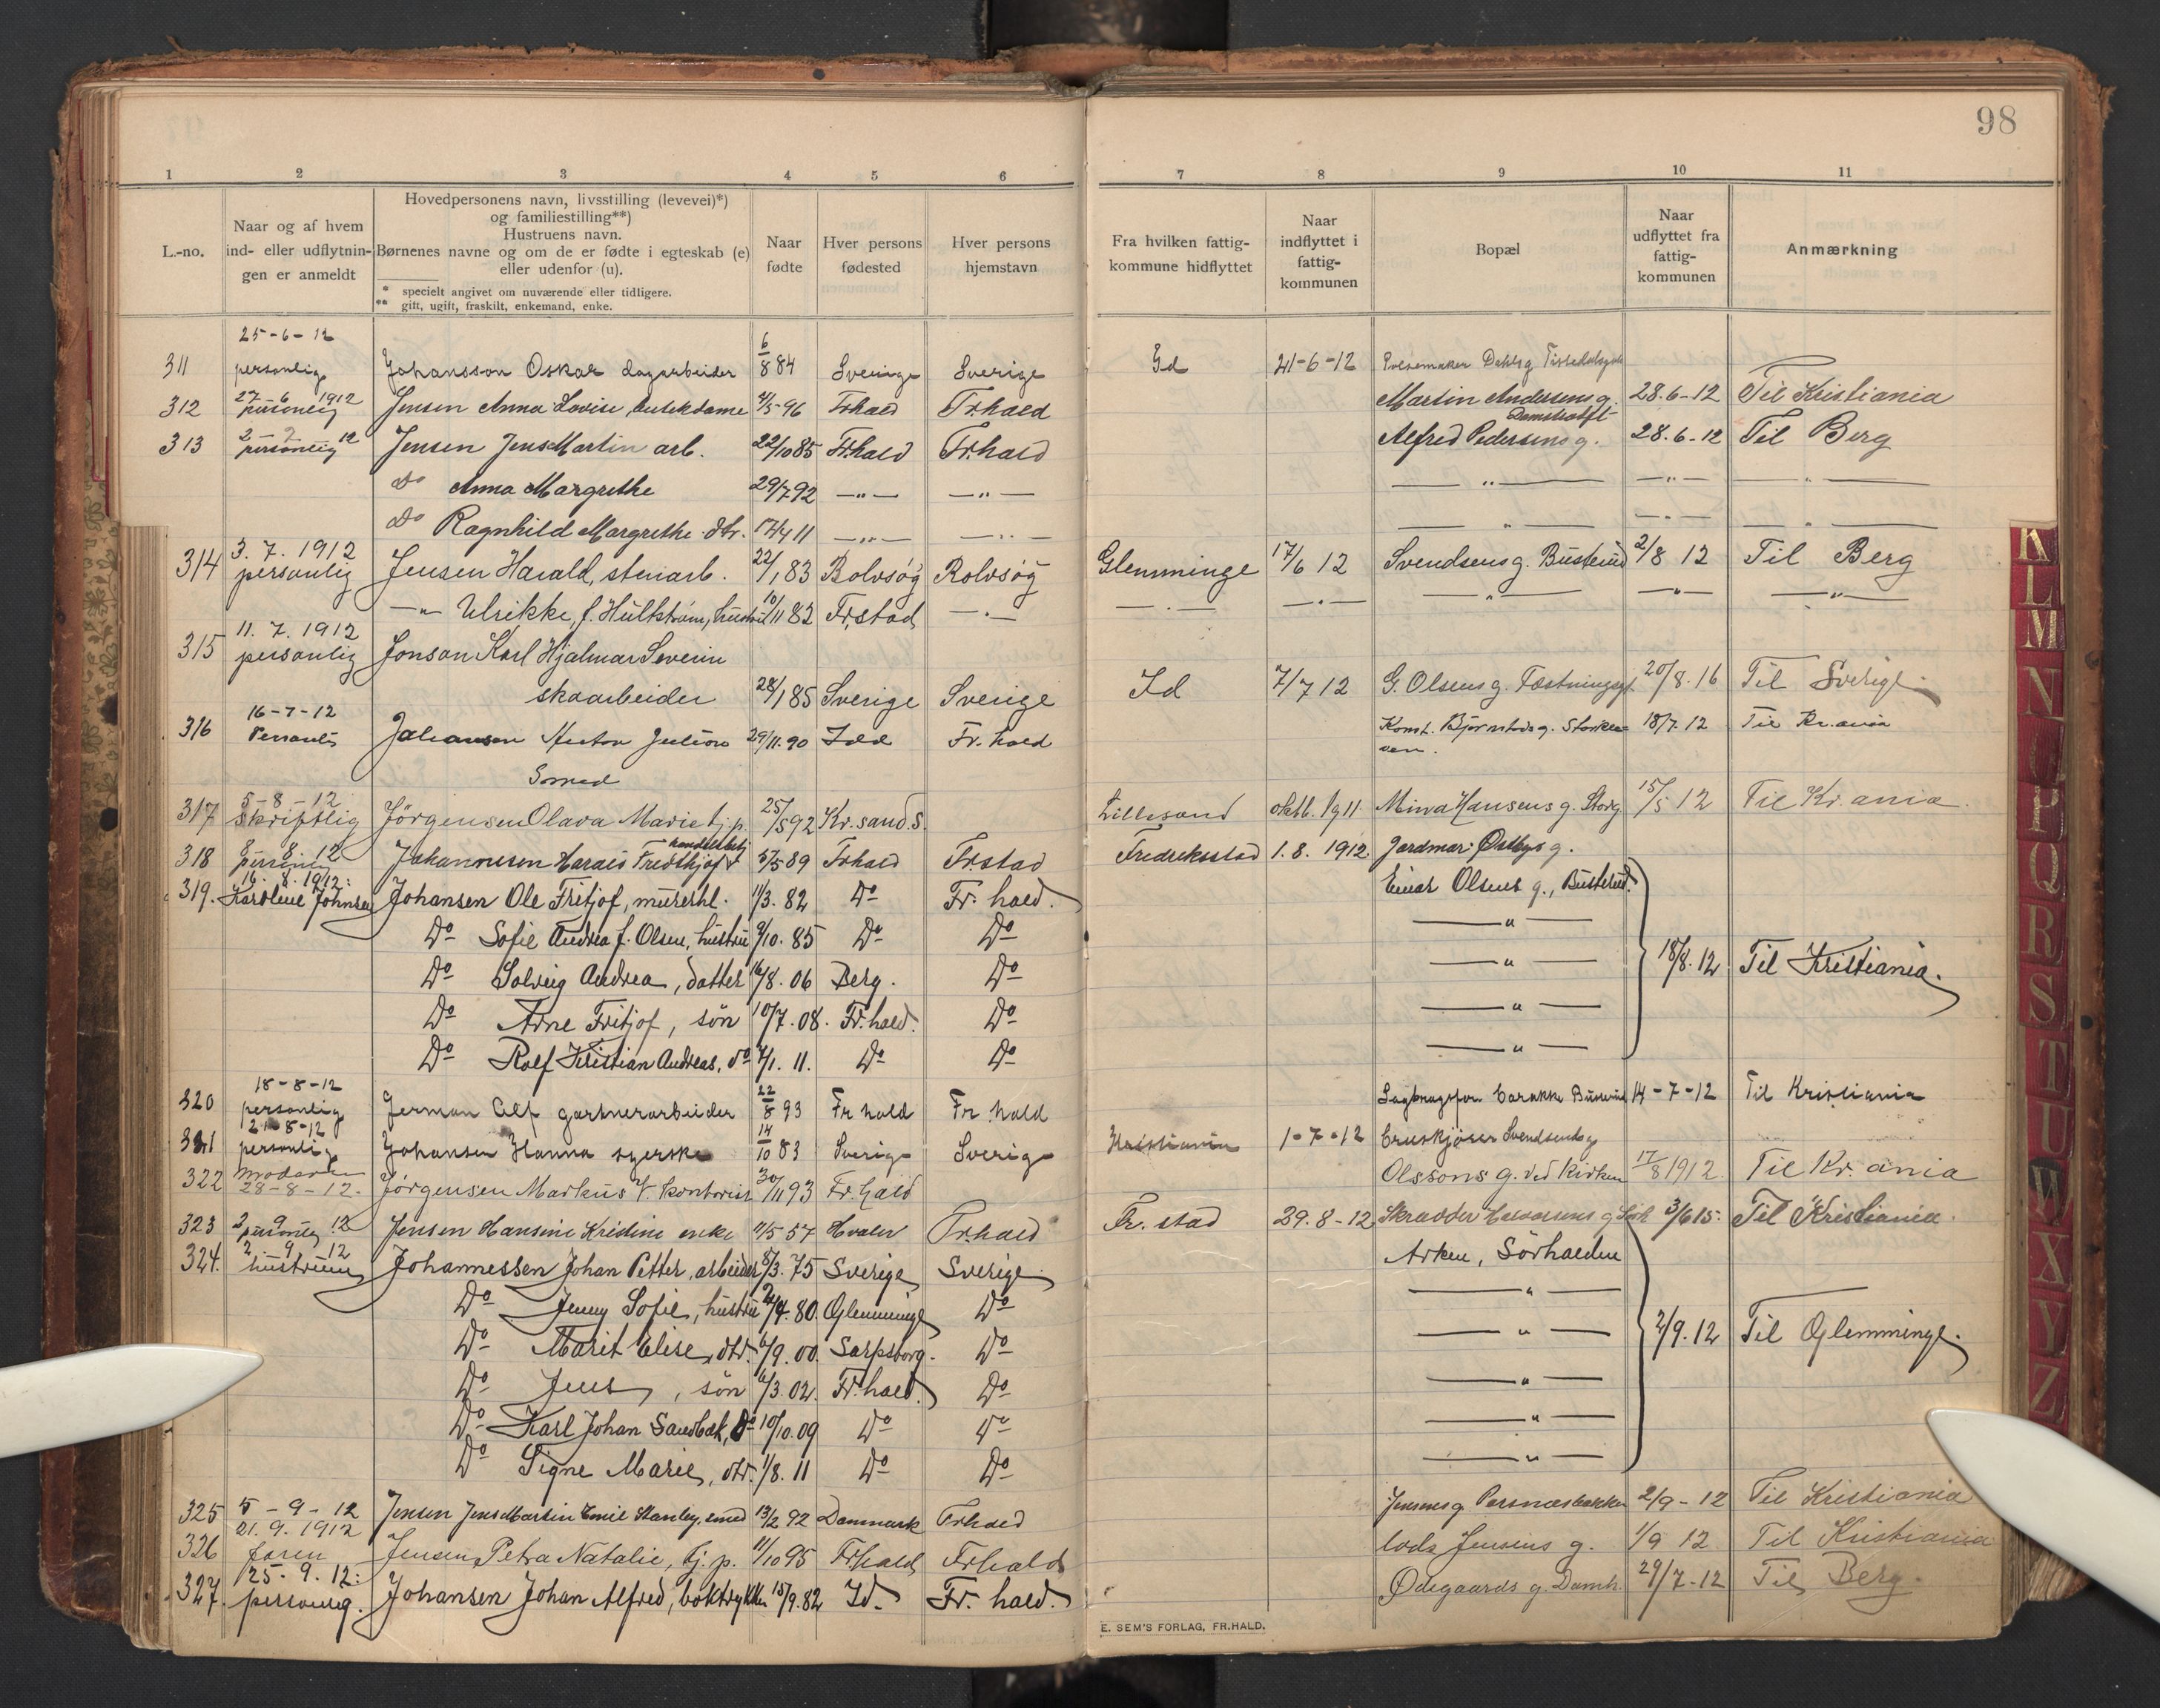 98
1 2 3 4 5 6 7 8 9 10 11
L.-no.
Naar og af hvem
ind- eller udflytnin-
gen er anmeldt
Hovedpersonens navn, livsstilling (levevei)*)
og familiestilling**)
Hustruens navn.
Børnenes navne og om de er fødte i egteskab (e)
eller udenfor (u).
* specielt angivet om nuværende eller tidligere.
** gift, ugift, fraskilt, enkemand, enke.
Naar
fødte
Hver persons
fødested
Hver persons
hjemstavn
Fra hvilken fattig-
kommune hidflyttet
Naar
indflyttet i
fattig-
kommunen
Bopæl
Naar
udflyttet fra
fattig-
kommunen
Anmærkning
25-6-12
311 personlig Johansson Oskar dagarbeider 6/8 84 Sverige Sverige Id 21-6-12
27-6 1912
312 personlig Jensen Anna Lovise, butikdame 4/5 96 Frhald Frhald Martin Andersens g. 28.6-12 Til Kristiania
2-7-12
313 personlig Jensen Jens Martin arb. 22/10 85 Fr.hald Fr.hald Alfred Pedersens g. 28.6-12 Til Berg
do Anna Margrethe 29/7 92 —"— —"— —"— —"— —"—
do Ragnhild Margrethe dtr. 17/4 11 —"— —"— —"— —"— —"—
3. 7. 1912
314 personlig Jensen Harald, stenarb. 22/1 83 Rolvsøg Rolvsøg Glemminge 17/6 12 Svendsens g. Busterud 2/8 12 Til Berg
—"— Ulrikke, f. Hultstrøm, hustru 10/11 82 Fr.stad —"— —"— —"— —"— —"— —"—
11. 7. 1912
315 personlig Jonson Karl Hjalmar Severin
skoarbeider 28/1 85 Sverige Sverige Id 7/7 12 G. Olsens g. Fæstningsgt. 20/8. 16 Til Sverige
16-7-12
316 Johansen Anton Julius 29/11. 90 Idd Fr. hald Konst. Bjørnstads g. 18/7. 12 Til Kr.ania
5-8-12
317 skriftlig Jørgensen Olava Marie tj.p. 25/5 92 Kr.sand.S. Lillesand oktb. 1911. Mina Hansens g. Storg 15/5 12 Til Kr.ania
8-8-12
318 Johannesen Harald Fredthjof 5/5 89 Frhald Fr.stad Fredriksstad 1. 8. 1912 Jordmor Østbys g.
16. 8. 1912:
319. Karoline Johnsen Johansen Ole Fritjof, murerhl. 11/3. 82 Do Fr. hald. Einar Olsens g., Busterud.
Do Sofie Andrea f. Olsen, hustru 9/10. 85 Do Do —"—
Do Solveig Andrea, datter 16/8. 06 Berg. Do —"— 18/8. 12 Til Kristiania.
Do Arne Fritjof, søn 10/7. 08. Fr. hald. Do —"—
Do Rolf Kristian Andreas, do 7/1. 11. Do Do —"—
18-8-12
320 personlig German Alf gartnerarbeider 22/8 93 Fr hald Fr. hald 14-7-12 Til Kristiania
21-8-12
321 personlig Johansen Hanna syerske 14/10 83 Sverige Sverige Kristiania 1-7-12 Svendsens g
322 Moderen
28-8-12. Jørgensen Markus V. kontorist 30/11 93 Fr.hald Olssons g. ved Kirken 17/8 1912. Til Kr.ania
2-9-12
323 personlig Jensen Hansine Kristine enke 11/5 57 Hvaler Fr.hald Fr. stad 29. 8-12 Skrædder Halvorsens g 3/6 15. Til Kristiania.
2-9-12
324. hustruen Johannessen Johan Petter, arbeider 8/3. 75 Sverige Sverige Arken, Sørhalden
Do Jenny Sofie, hustru 24/4. 80. Glemminge Do —"—
Do Marit Elise, dtr. 6/9. 00. Sarpsborg. Do —"— 2/9. 12 Til Glemminge.
Do Jens, søn 6/3. 02. Fr. hald. Do —"—
Do Karl Johan Sandbæk, do 10/10. 09 Do Do —"—
Do Signe Marie, dtr. 1/8. 11 Do Do —"—
325 5-9-12 Jensen Jens Martin Emil Stanley, smed 13/2 92 Danmark Frhald Jensens g. Porsnæsbakken 2/9-12 Til Kristiania
21. 9. 1912
326 faren Jensen, Petra Natalie, tj. p. 11/10 95 Frhald Frhald lods Jensens g. 1/9 12 Til Kristiania
25. 9. 12:
327. personlig. Johansen Johan Alfred, boktrykker 15/9. 82 Id. Fr. hald. Ødegaards g. Damh. 29/7-12 Til Berg.
E. SEM'S FORLAG, FR.HALD.
K
L
M
N
O
P
Q
R
S
T
U
W
X
Y
Z